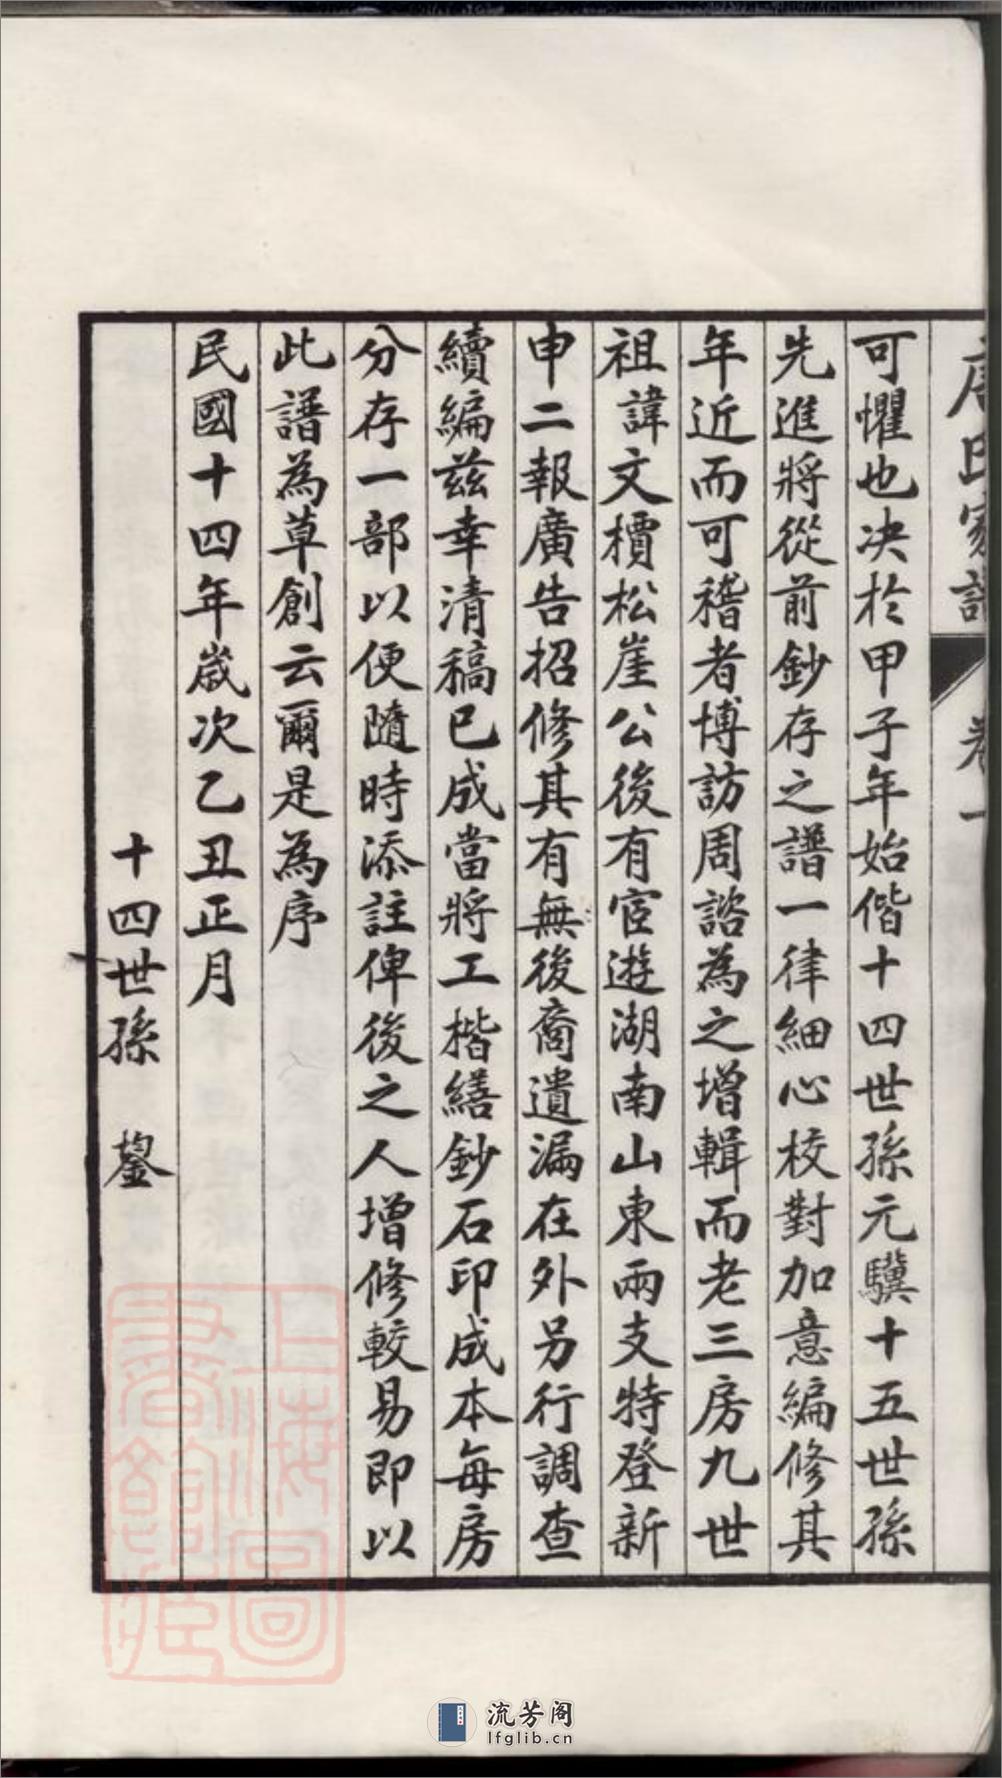 唐氏家譜 卷一
可懼也决於甲子年始偕十四世孫元驥十五世孫
先進將從前鈔存之譜一律細心校對加意編修其
年近而可稽者博訪周諮為之增輯而老三房九世
祖諱文櫝松崖公後有宦遊湖南山東兩支特登新
申二報廣告招修其有無後裔遺漏在外另行調查
續編茲幸清稿已成當將工楷繕鈔石印成本每房
分存一部以便隨時添註俾後之人增修較易即以
此譜為草創云爾是為序
民國十四年歲次乙丑正月
十四世孫 鋆
上海圖書館藏
流芳阁
lfglib.cn